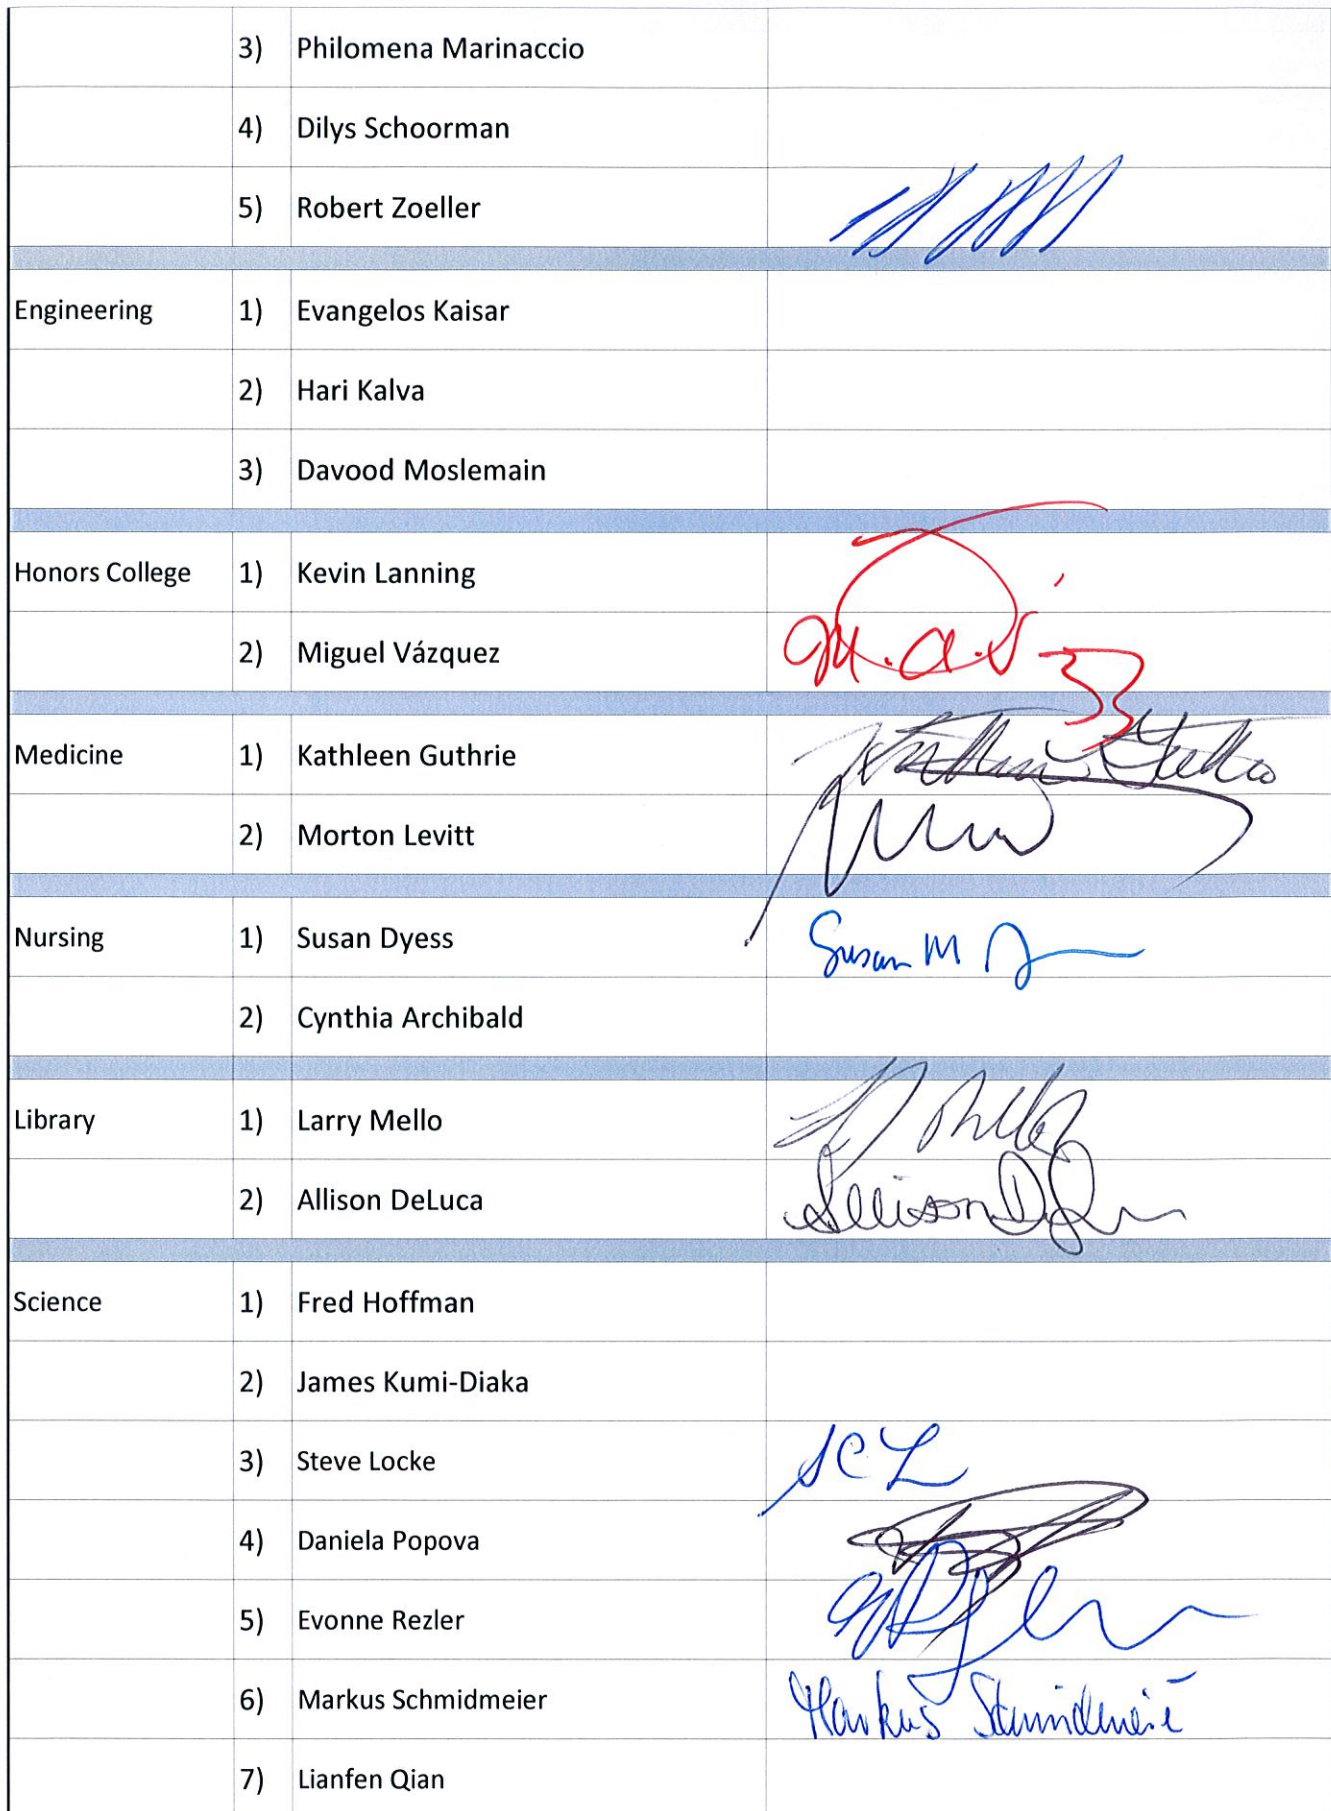 3) Philomena Marinaccio
4) Dilys Schoorman
5) Robert Zoeller
Engineering 1) Evangelos Kaisar
2) Hari Kalva
3) Davood Moslemain
Honors College 1) Kevin Lanning
2) Miguel Vázquez
Medicine 1) Kathleen Guthrie
2) Morton Levitt
Nursing 1) Susan Dyess Susan M
2) Cynthia Archibald
Library 1) Larry Mello
2) Allison DeLuca Allison
Science 1) Fred Hoffman
2) James Kumi-Diaka
3) Steve Locke SCL
4) Daniela Popova
5) Evonne Rezler
6) Markus Schmidmeier Markus Schmidmeier
7) Lianfen Qian